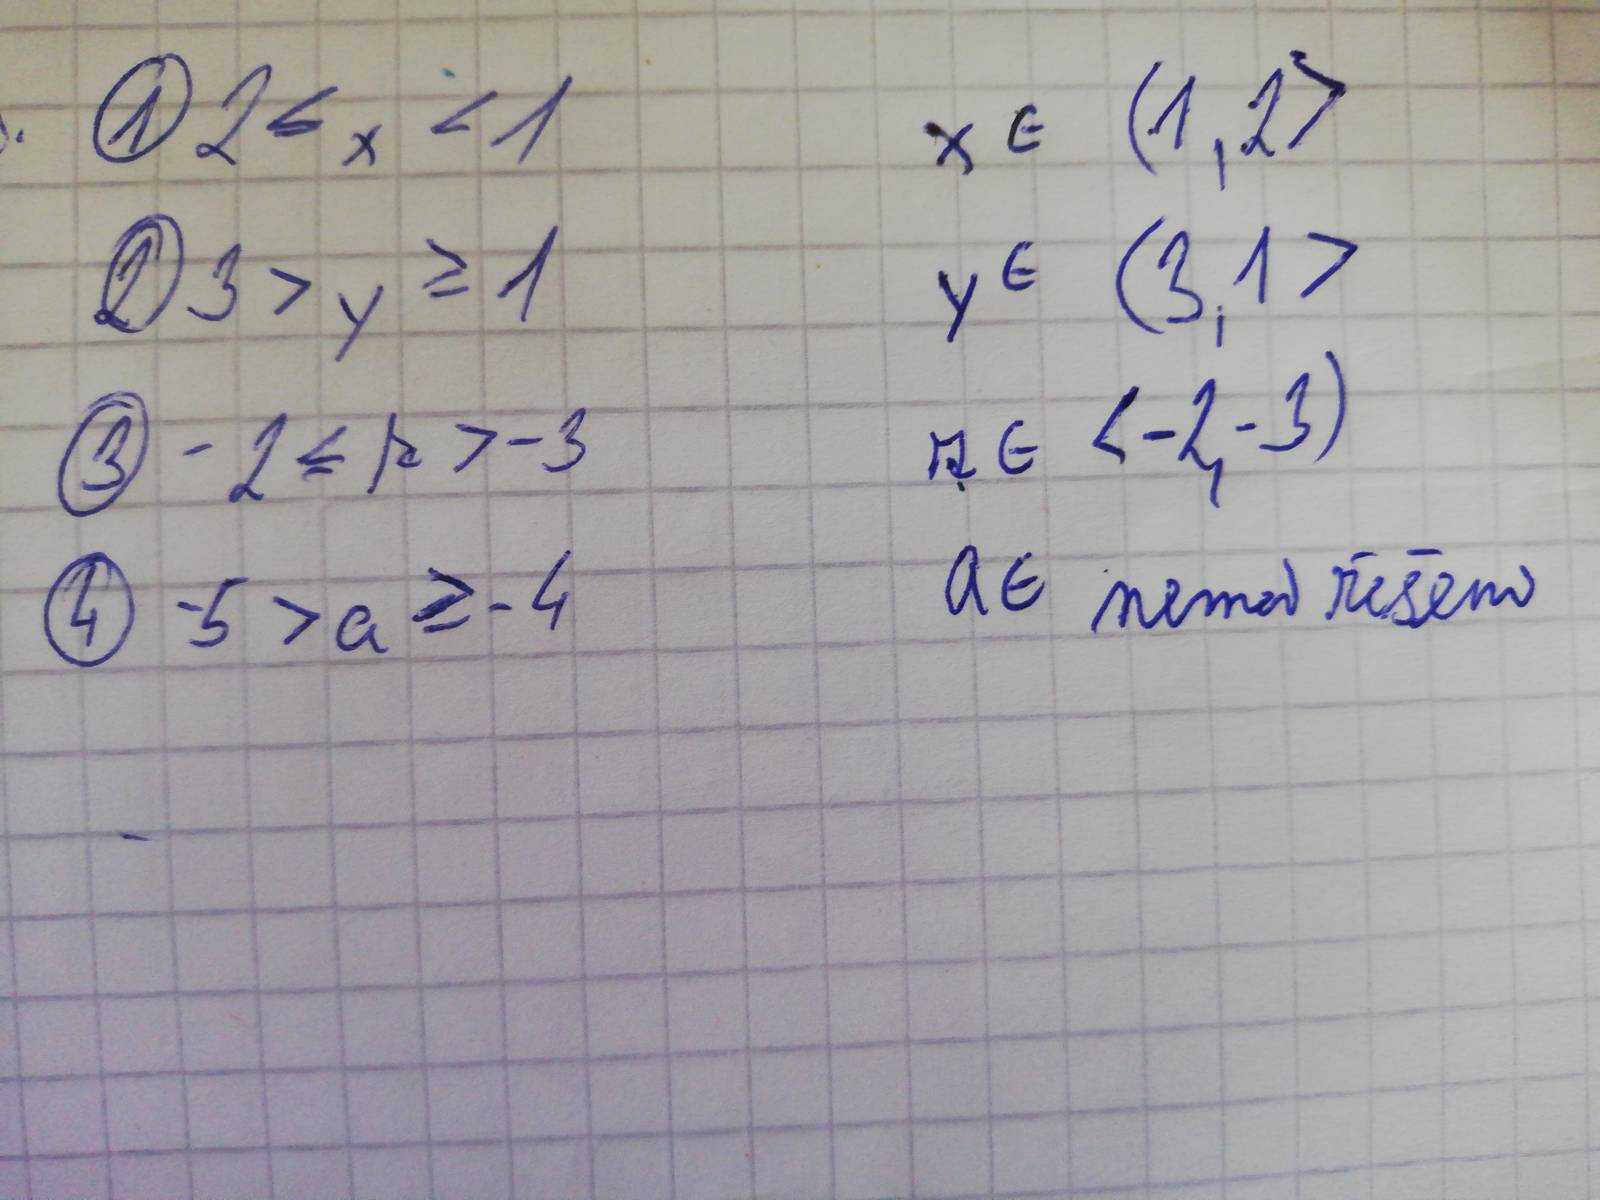 ① 2 ≤ x < 1 x ∈ (1,2>
② 3 > y ≥ 1 y ∈ (3,1>
③ -2 ≤ r > -3 r ∈ <-2,-3)
④ -5 > a ≥ -4 a ∈ nemá řešení